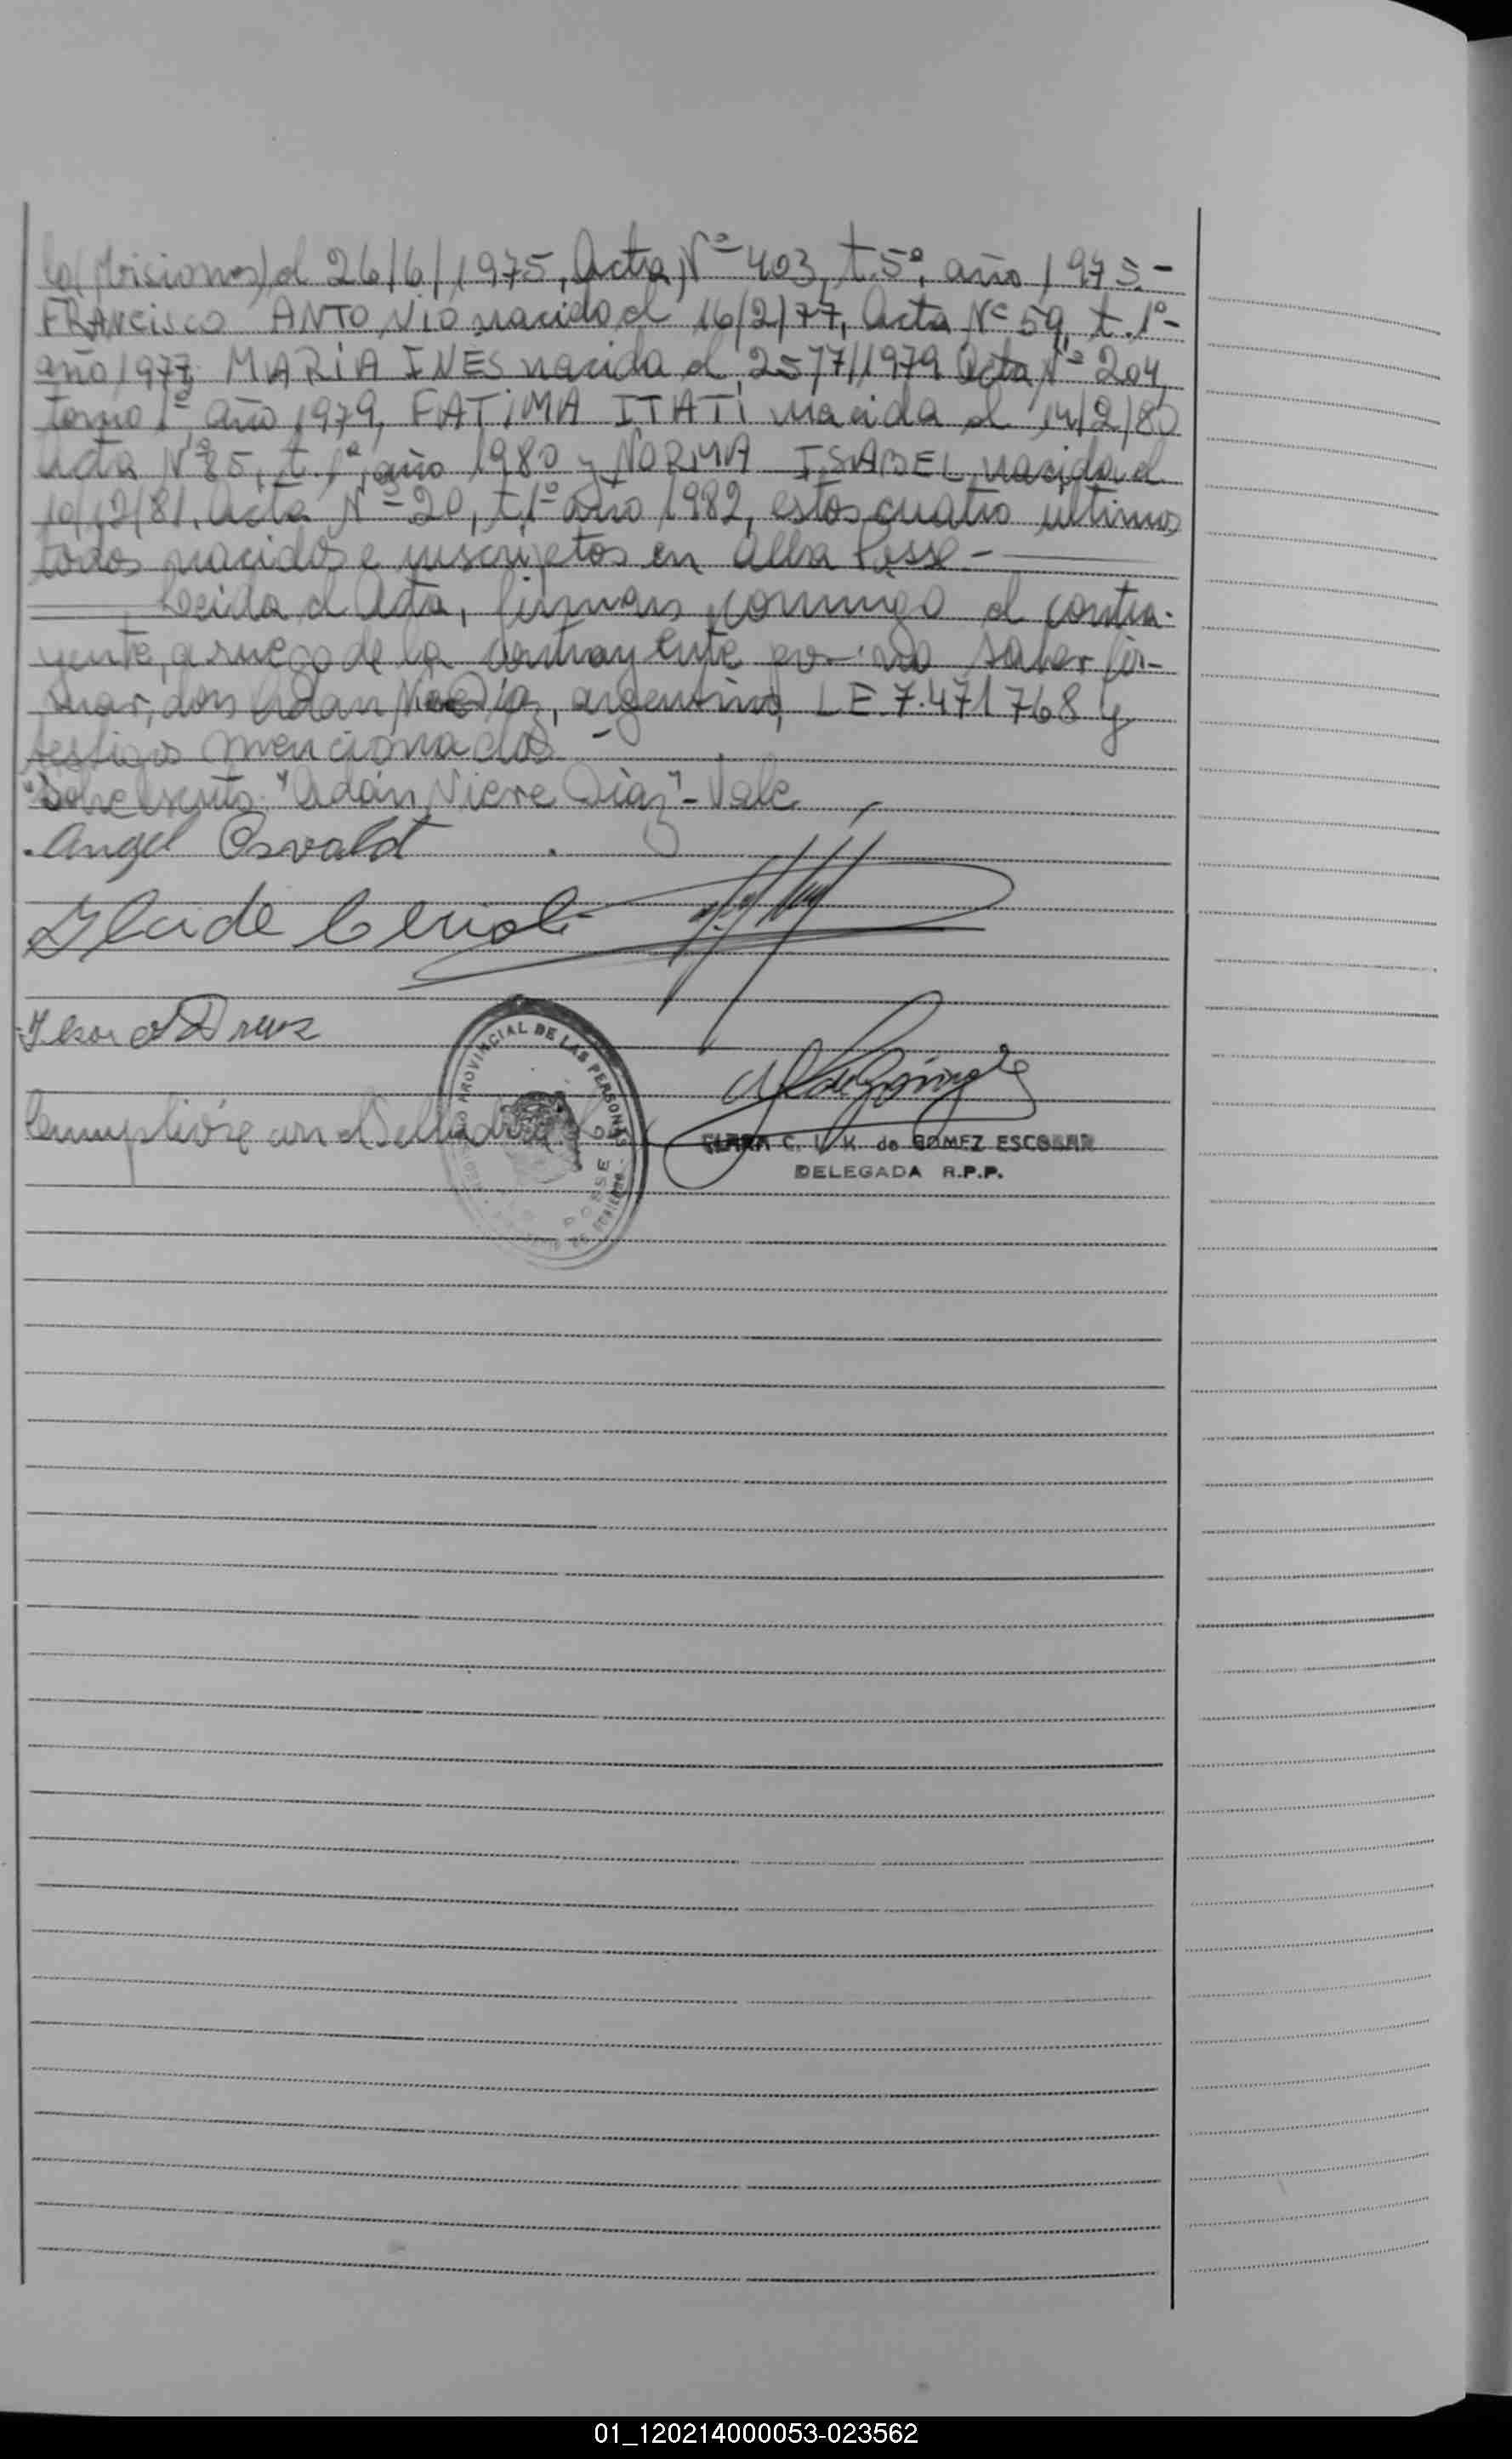 (Misiones) el 26/6/1975, Acta Nº 403, t.5º, año 1975.-
FRANCISCO ANTONIO nacido el 16/2/77, Acta Nº 59, t.1º-
año 1977, MARIA INES nacida el 25/7/1979 Acta Nº 204,
tomo 1º año 1979, FATIMA ITATI nacida el 14/2/80
Acta Nº 85, t.1º, año 1980 y NORMA ISABEL, nacida el
10/12/81, Acta Nº 20, t.1º año 1982, estos cuatro últimos
todos nacidos e inscriptos en Alba Posse.-
Leida el Acta, firman conmigo el contra-
yente, a ruego de la contrayente por no saber fir-
mar, don Adan Díaz, argentino, L.E. 7.471768 y
testigos mencionados.-
Sobrescrito: "Adán Niere Díaz"- Vale
Angel Osvald
PROVINCIAL DE LAS PERSONAS
POSSE
CLARA C. L. K. de GOMEZ ESCOBAR
DELEGADA R.P.P.
01_120214000053-023562